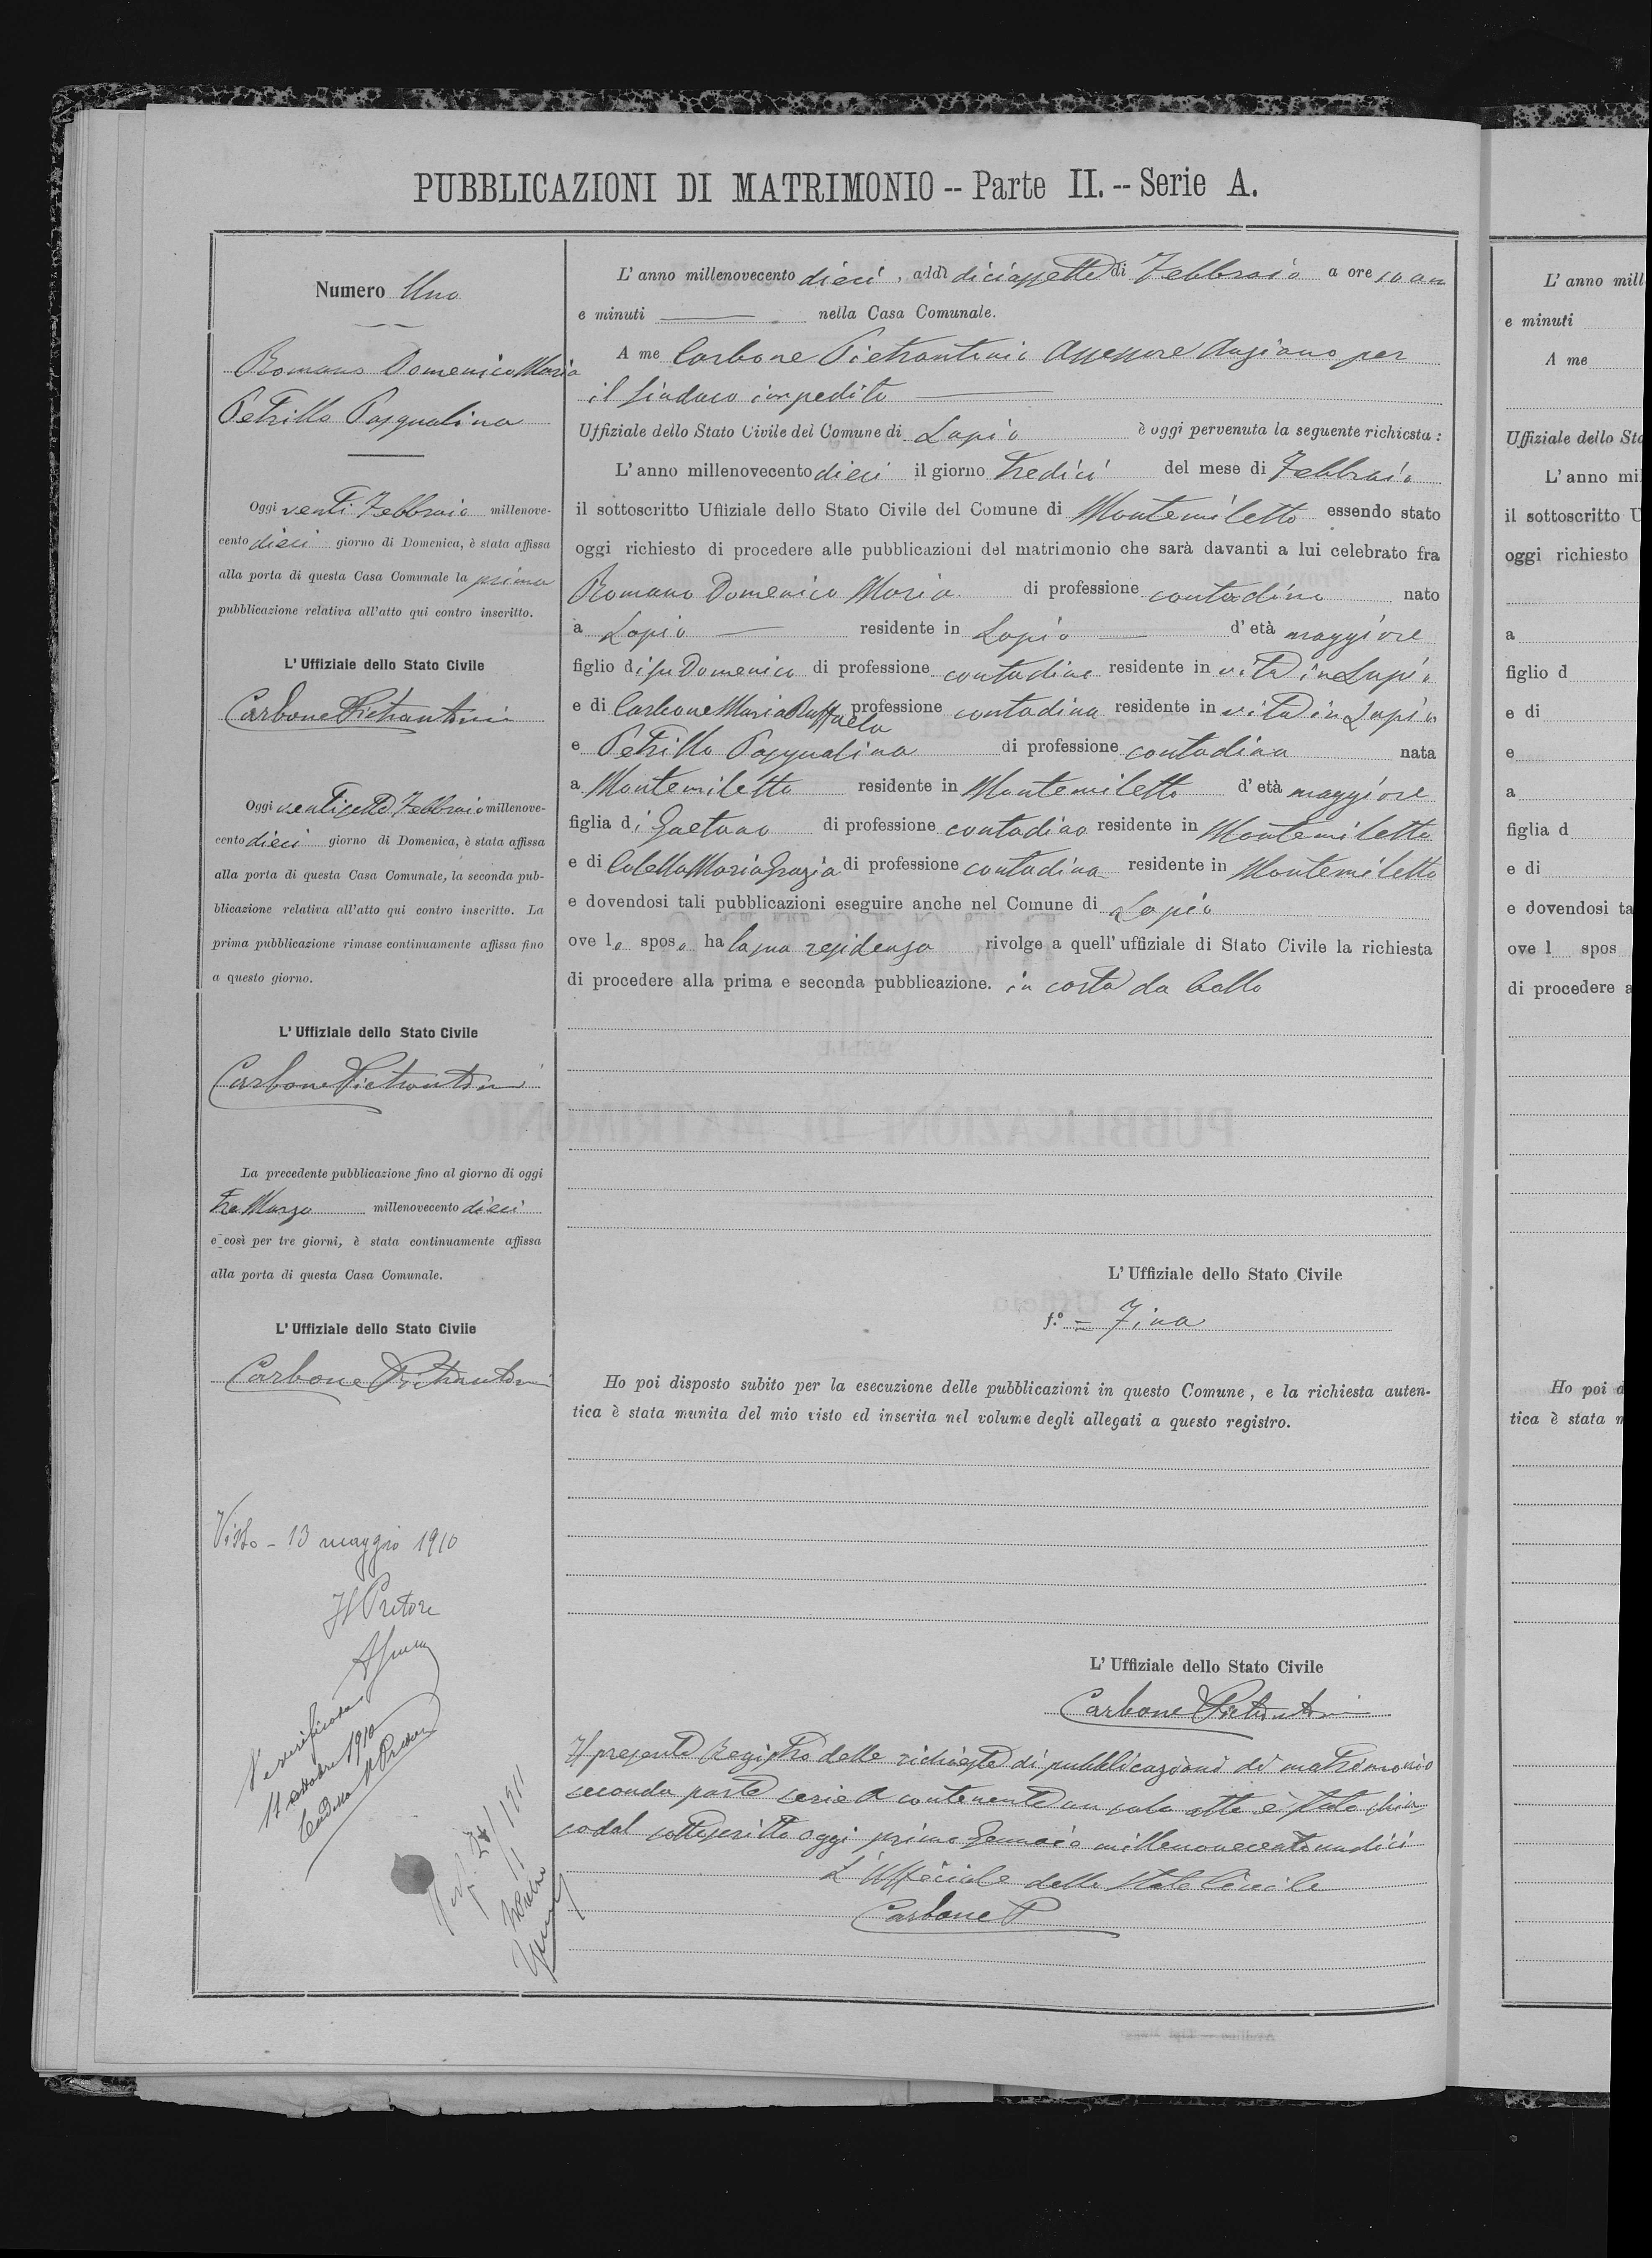 PUBBLICAZIONI DI MATRIMONIO -- Parte II. -- Serie A.
Numero Uno
Romano Domenico Maria
Petrillo Pasqualina
Oggi venti Febbraio millenove-
cento dieci giorno di Domenica, è stata affissa
alla porta di questa Casa Comunale la prima
pubblicazione relativa all'atto qui contro inscritto.
L'Uffiziale dello Stato Civile
Carbone Pietrantonio
Oggi ventisette Febbraio millenove-
cento dieci giorno di Domenica, è stata affissa
alla porta di questa Casa Comunale, la seconda pub-
blicazione relativa all'atto qui contro inscritto. La
prima pubblicazione rimase continuamente affissa fino
a questo giorno.
L'Uffiziale dello Stato Civile
Carbone Pietrantonio
La precedente pubblicazione fino al giorno di oggi
tre Marzo millenovecento dieci
e così per tre giorni, è stata continuamente affissa
alla porta di questa Casa Comunale.
L'Uffiziale dello Stato Civile
Carbone Pietrantonio
Visto - 13 maggio 1910
Il Pretore
Verificato
11 ottobre 1910
Il Pretore
L'anno millenovecento dieci, addì diciassette di Febbraio a ore 10 an
e minuti ——— nella Casa Comunale.
A me Carbone Pietrantonio Assessore Anziano per
il Sindaco impedito ———
Uffiziale dello Stato Civile del Comune di Lapio è oggi pervenuta la seguente richiesta:
L'anno millenovecento dieci il giorno tredici del mese di Febbraio
il sottoscritto Uffiziale dello Stato Civile del Comune di Montemiletto essendo stato
oggi richiesto di procedere alle pubblicazioni del matrimonio che sarà davanti a lui celebrato fra
Romano Domenico Maria di professione contadino nato
a Lapio — residente in Lapio — d'età maggiore
figlio di fu Domenico di professione contadino residente in vita in Lapio
e di Carbone Maria Raffaela professione contadina residente in vita in Lapio
e Petrillo Pasqualina di professione contadina nata
a Montemiletto residente in Montemiletto d'età maggiore
figlia di Gaetano di professione contadino residente in Montemiletto
e di Colella Maria Grazia di professione contadina residente in Montemiletto
e dovendosi tali pubblicazioni eseguire anche nel Comune di Lapio
ove lo sposo ha la sua residenza rivolge a quell'uffiziale di Stato Civile la richiesta
di procedere alla prima e seconda pubblicazione. in carta da bollo
L'Uffiziale dello Stato Civile
f.o = Fina
Ho poi disposto subito per la esecuzione delle pubblicazioni in questo Comune, e la richiesta auten-
tica è stata munita del mio visto ed inserita nel volume degli allegati a questo registro.
L'Uffiziale dello Stato Civile
Carbone Pietrantonio
Il presente Registro delle richieste di pubblicazioni di matrimonio
seconda parte serie A contenente un solo atto è stato chiu
so dal sottoscritto oggi primo Gennaio millenovecentoundici
L'Ufficiale dello Stato Civile
Carbone P
L'anno mill
e minuti
A me
Uffiziale dello Sta
L'anno mil
il sottoscritto U
oggi richiesto
a
figlio d
e di
e
a
figlia d
e di
e dovendosi ta
ove l spos
di procedere a
Ho poi d
tica è stata m